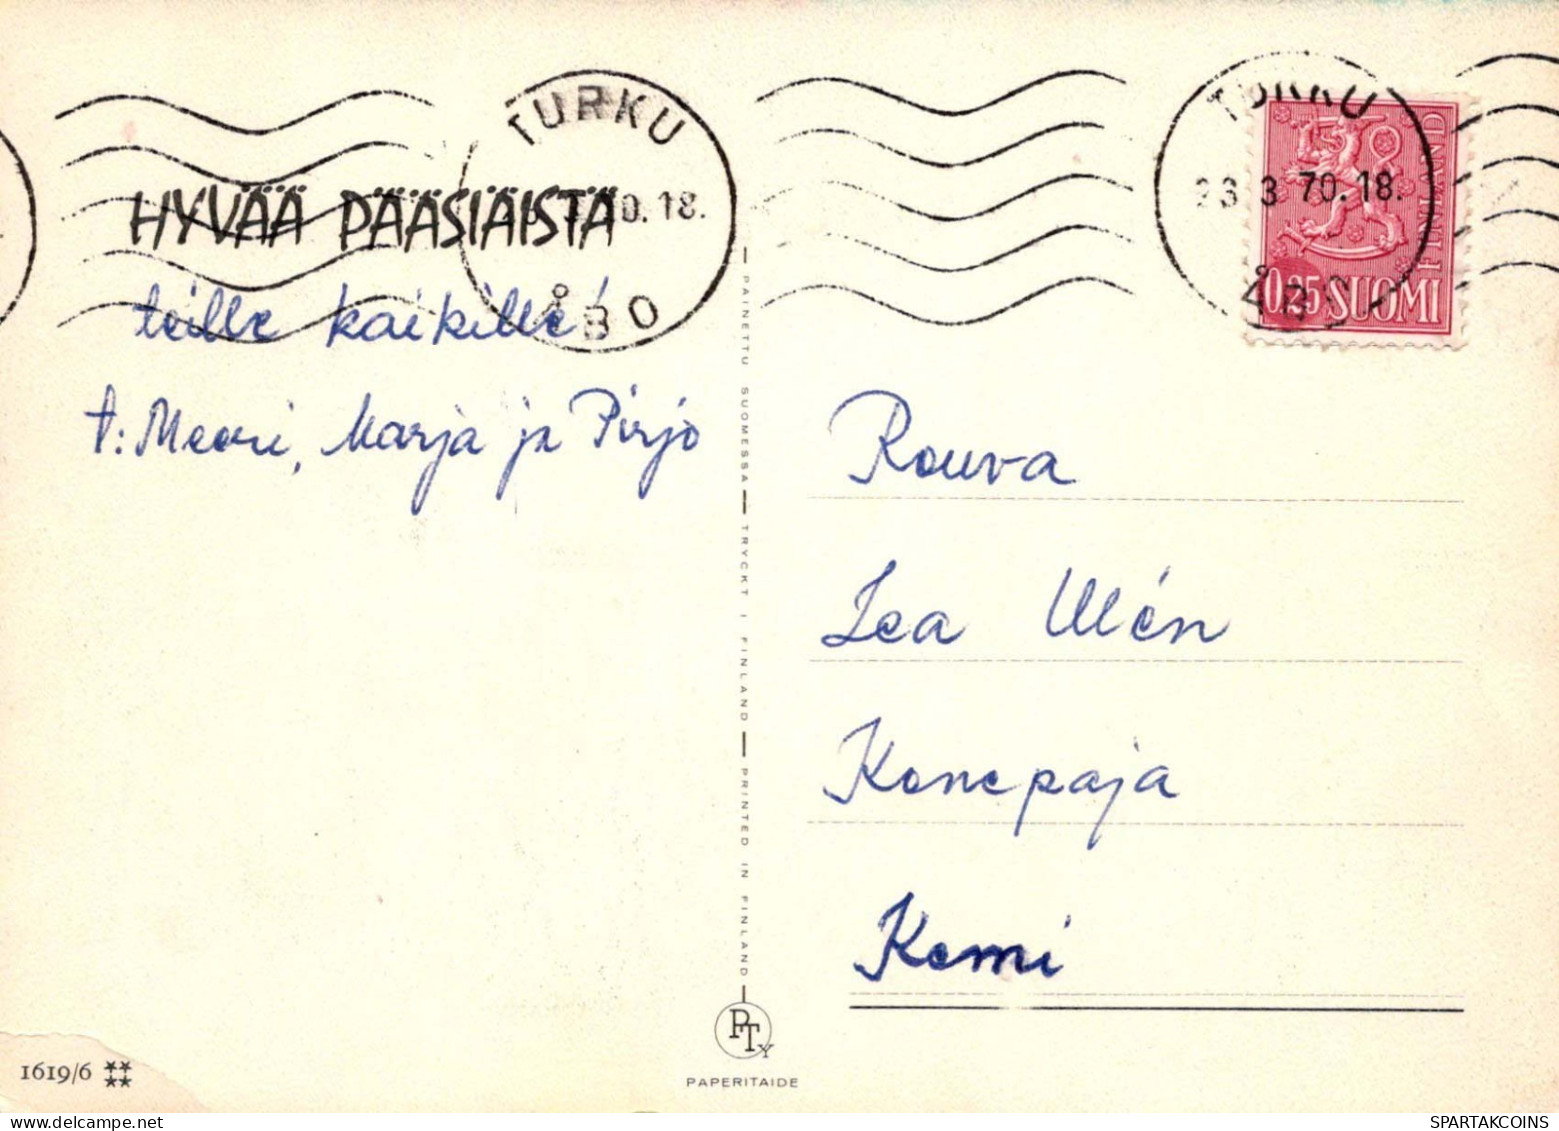 TURKU
70.18.
ÅBO
TURKU
23.3 70.18.
ÅBO
0,25 SUOMI
FINLAND
HYVÄÄ PÄÄSIÄISTÄ
teille kaikille!
t: Meeri, Marja ja Pirjo
PAINETTU SUOMESSA — TRYCKT I FINLAND — PRINTED IN FINLAND
Rouva
Lea Ulién
Konepaja
Kemi
PTY
PAPERITAIDE
1619/6
SPARTAKCOINS